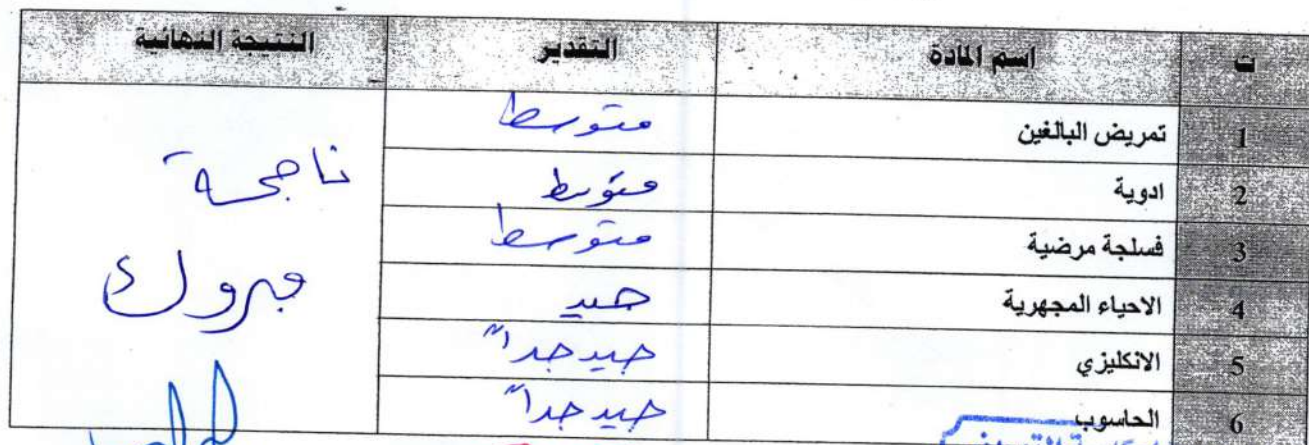 ت اسم المادة التقدير النتيجة النهائية
1 تمريض البالغين متوسط
2 ادوية متوسط
3 فسلجة مرضية متوسط
4 الاحياء المجهرية جيد
5 الانكليزي جيد جداً
6 الحاسوب جيد جداً
ناجحة
مبروك